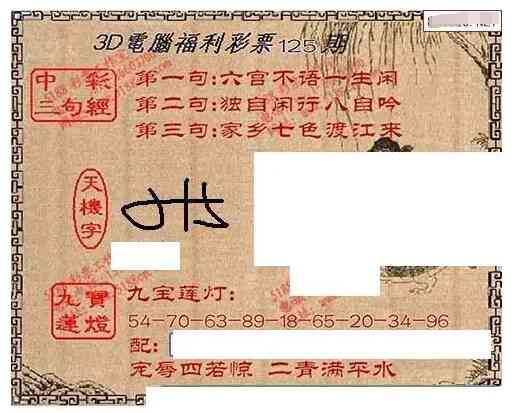 3D電腦福利彩票125期
中彩
三句經
第一句:六宫不语一生闲
第二句:独自闲行八自吟
第三句:家乡七色渡江来
天機字
九寶
蓮燈
九宝莲灯:
54-70-63-89-18-65-20-34-96
配:
宠辱四若惊 二青满平水